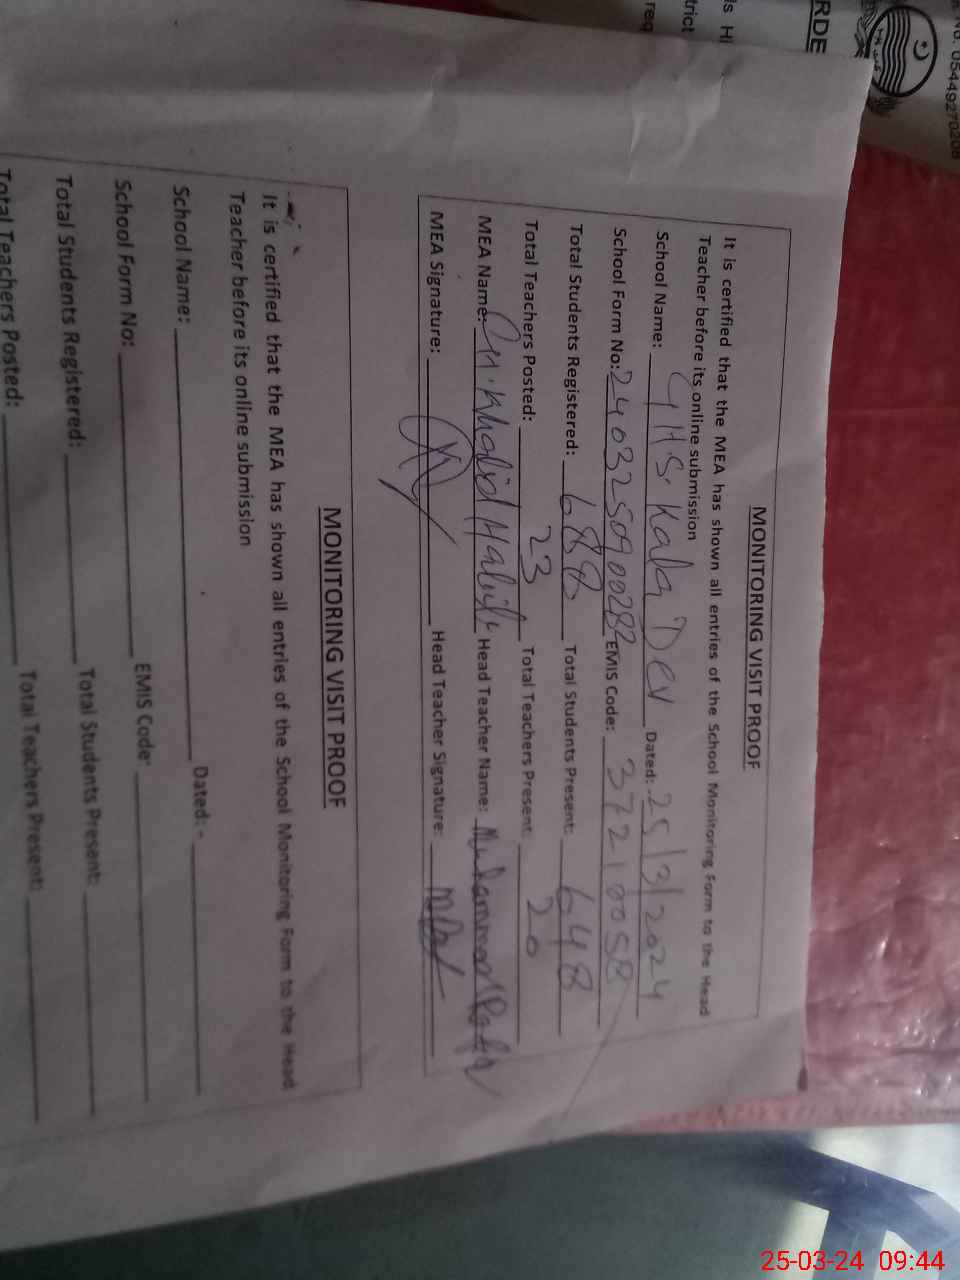 No. 05449270209
RDE
ls Hi
trict
req
MONITORING VISIT PROOF
It is certified that the MEA has shown all entries of the School Monitoring Form to the Head
Teacher before its online submission
School Name: GHS Kala Dev Dated: 25/3/2024
School Form No: 2403250900282 EMIS Code: 37210058
Total Students Registered: 688 Total Students Present: 648
Total Teachers Posted: 23 Total Teachers Present: 20
MEA Name: Ch. Khalid Habib Head Teacher Name: Muhammad
MEA Signature: Head Teacher Signature:
MONITORING VISIT PROOF
It is certified that the MEA has shown all entries of the School Monitoring Form to the Head
Teacher before its online submission
School Name: Dated: -
School Form No: EMIS Code:
Total Students Registered: Total Students Present:
Total Teachers Posted: Total Teachers Present:
25-03-24 09:44